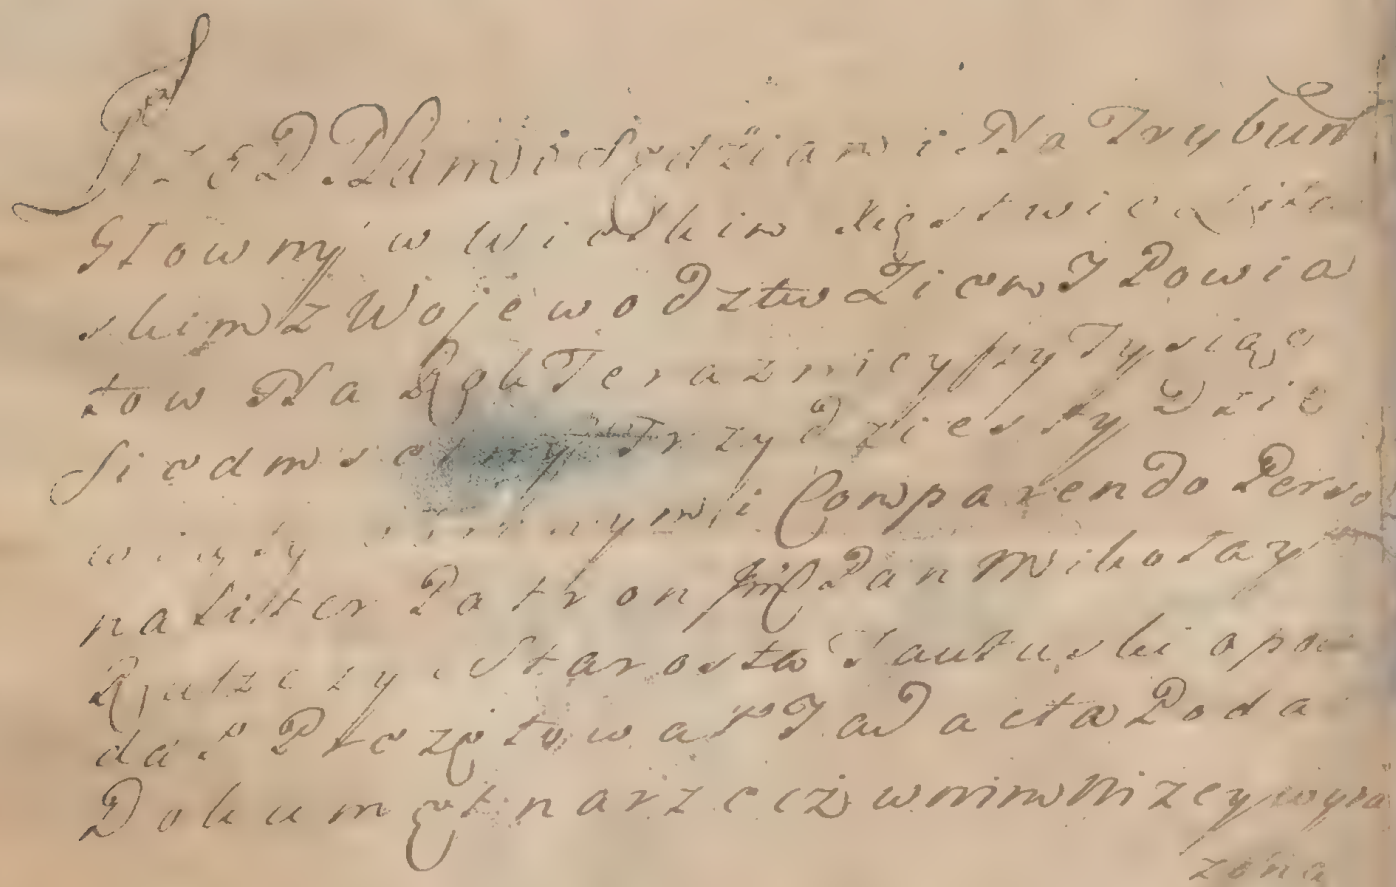 Przed Nami Sędziami Na Trybun
Głowny w Wielkim Xięstwie
skim z Wojewodztw Ziem I Powia
tow Na Rok Teraznieyszy Tysiąc
Siedmsetny Trzydziesty Dzie
wiąty Comparendo Perso
naliter Patron Jmć Pan Mikołay
Starosta opo
dał Prezętował I ad acta Poda
Dokumęt na rzecz w nim Nizey wyra
zona